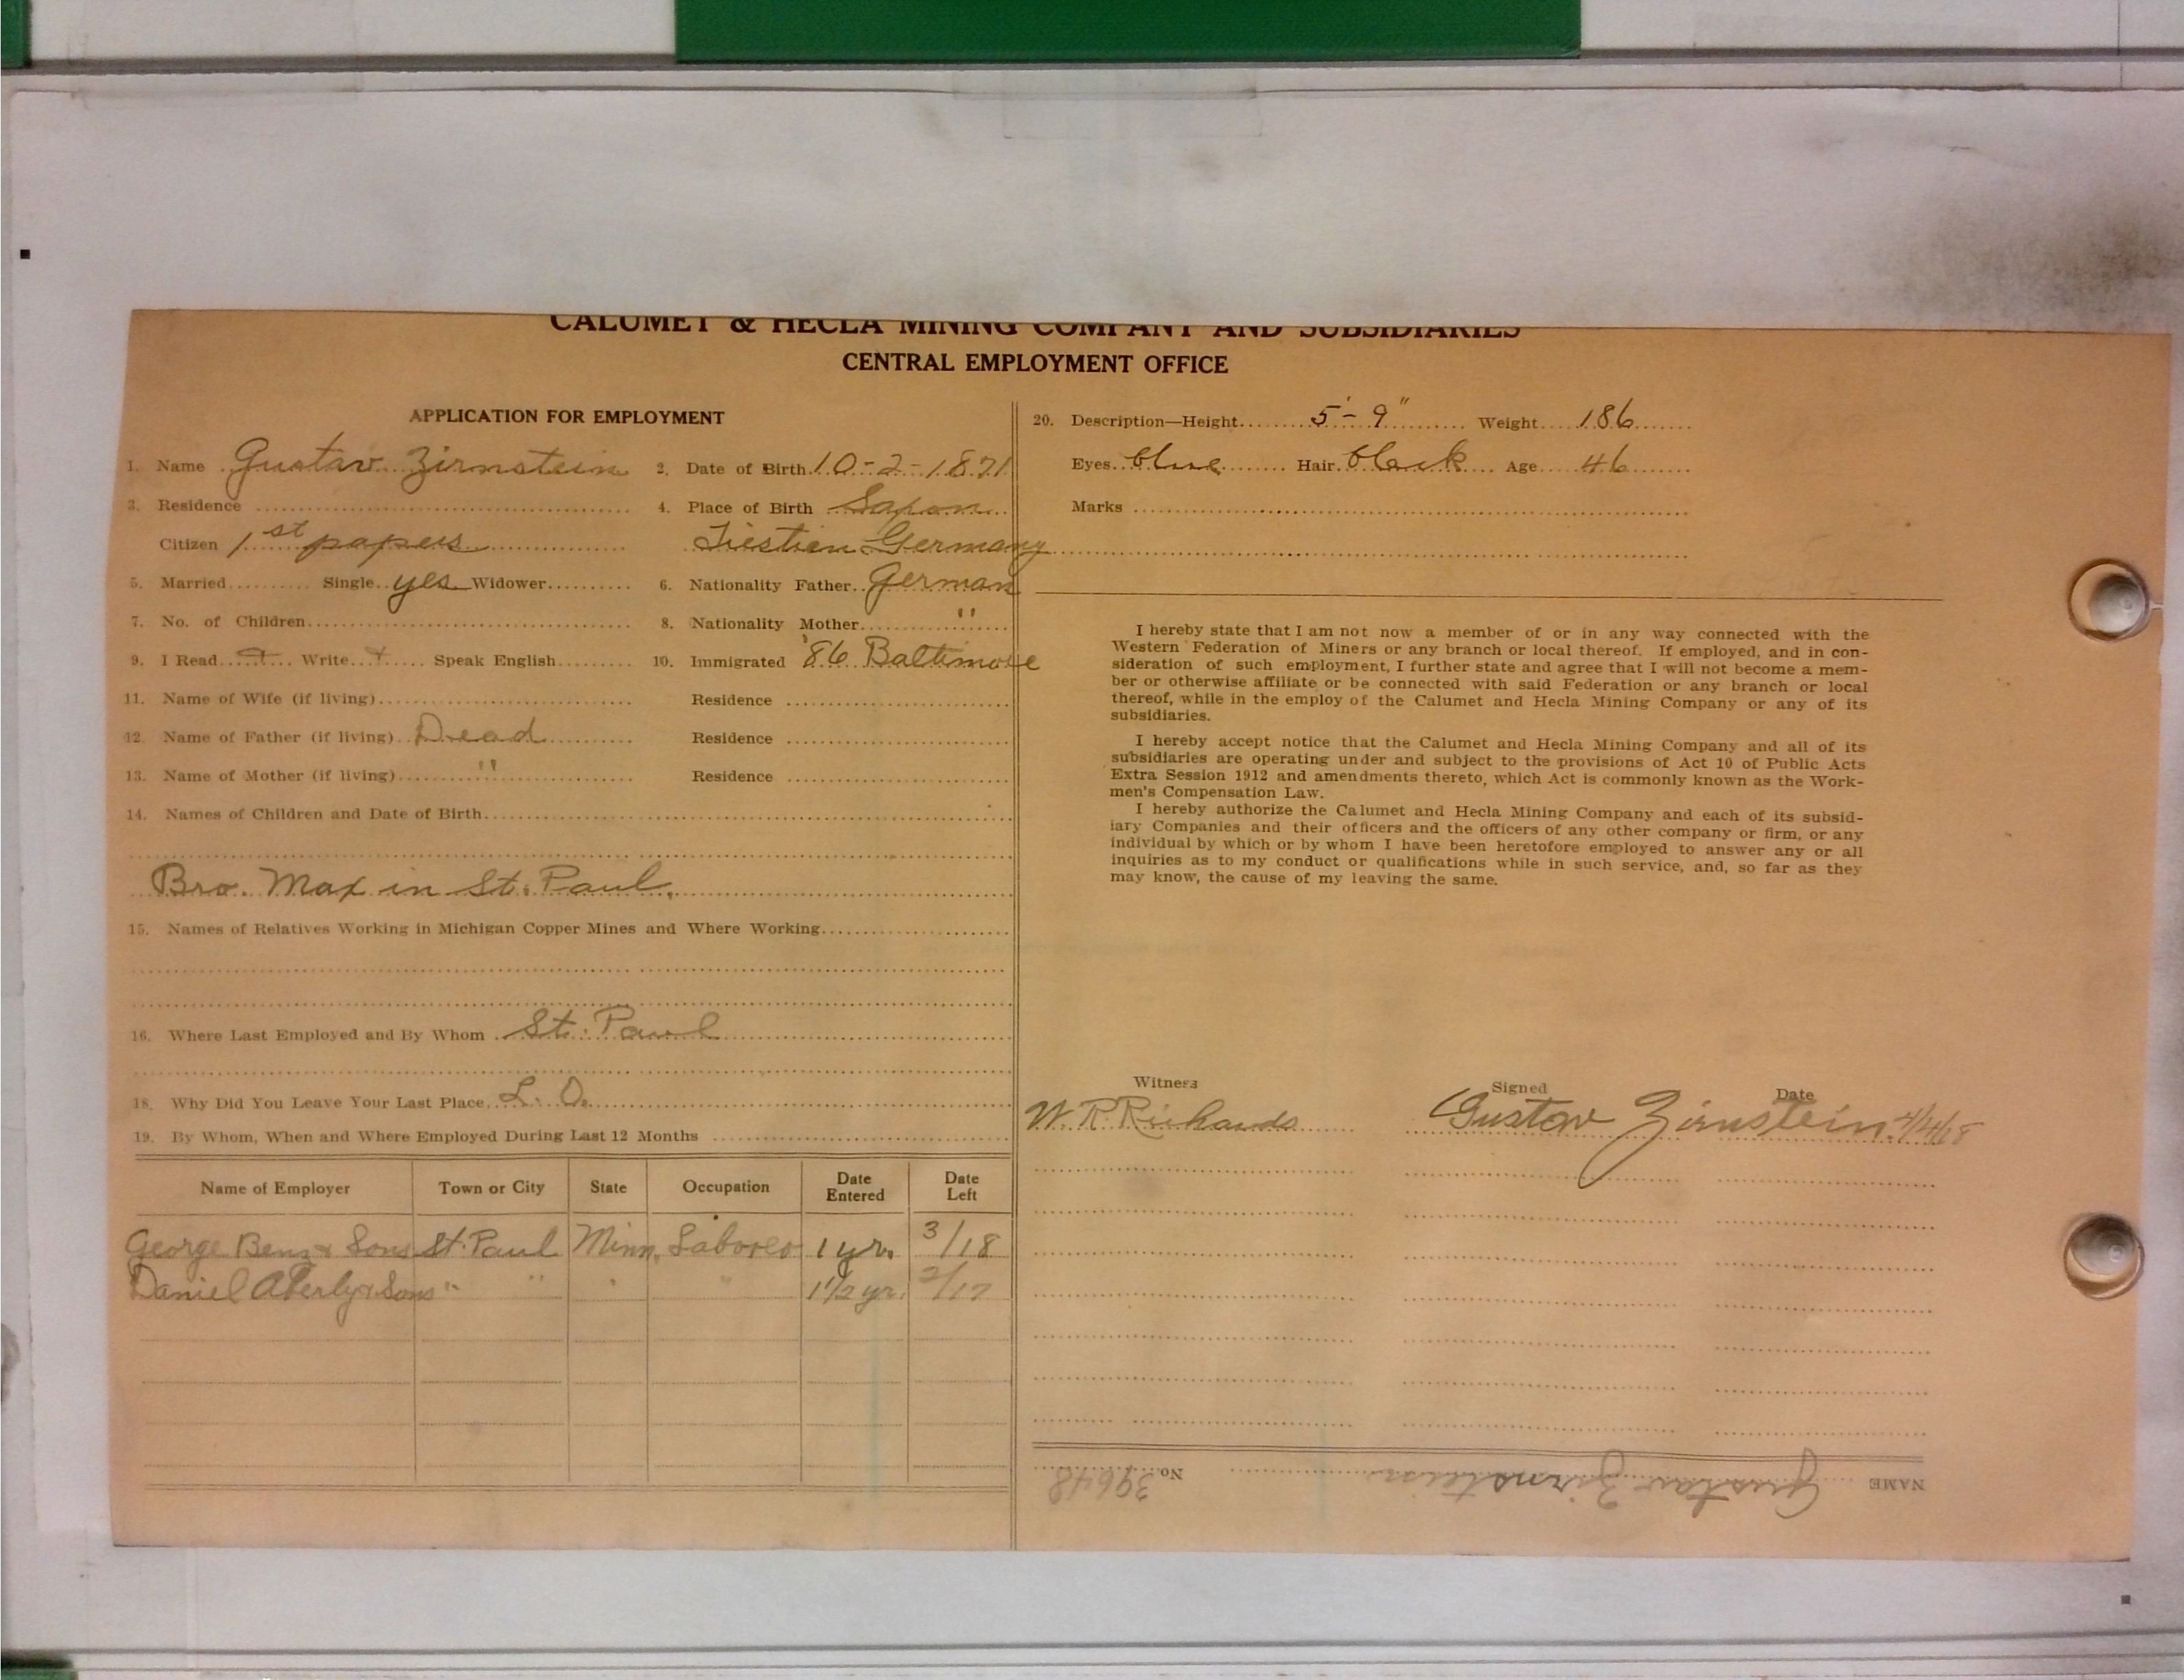 CALUMET & HECLA MINING COMPANY AND SUBSIDIARIES
CENTRAL EMPLOYMENT OFFICE
APPLICATION FOR EMPLOYMENT
1. Name Gustav Zirnstein 2. Date of Birth 10-2-1871
3. Residence 4. Place of Birth Saxon
Citizen 1st papers Germany
5. Married Single yes Widower 6. Nationality Father German
7. No. of Children 8. Nationality Mother "
9. I Read + Write + Speak English 10. Immigrated '86 Baltimore
11. Name of Wife (if living) Residence
12. Name of Father (if living) Dead Residence
13. Name of Mother (if living) " Residence
14. Names of Children and Date of Birth
Bro. Max in St. Paul.
15. Names of Relatives Working in Michigan Copper Mines and Where Working
16. Where Last Employed and By Whom St. Paul
18. Why Did You Leave Your Last Place L. O.
19. By Whom, When and Where Employed During Last 12 Months
Name of Employer Town or City State Occupation Date Entered Date Left
George Benz & Sons St. Paul Minn. Laborer 1 yr. 3/18
Daniel & Sons " " " " 1 1/2 yr. 2/17
20. Description—Height 5'-9" Weight 186
Eyes blue Hair black Age 46
Marks
I hereby state that I am not now a member of or in any way connected with the
Western Federation of Miners or any branch or local thereof. If employed, and in con-
sideration of such employment, I further state and agree that I will not become a mem-
ber or otherwise affiliate or be connected with said Federation or any branch or local
thereof, while in the employ of the Calumet and Hecla Mining Company or any of its
subsidiaries.
I hereby accept notice that the Calumet and Hecla Mining Company and all of its
subsidiaries are operating under and subject to the provisions of Act 10 of Public Acts
Extra Session 1912 and amendments thereto, which Act is commonly known as the Work-
men's Compensation Law.
I hereby authorize the Calumet and Hecla Mining Company and each of its subsid-
iary Companies and their officers and the officers of any other company or firm, or any
individual by which or by whom I have been heretofore employed to answer any or all
inquiries as to my conduct or qualifications while in such service, and, so far as they
may know, the cause of my leaving the same.
Witness Signed Date
W. R. Richards Gustav Zirnstein 4/4/18
NAME Gustav Zirnstein No. 39648